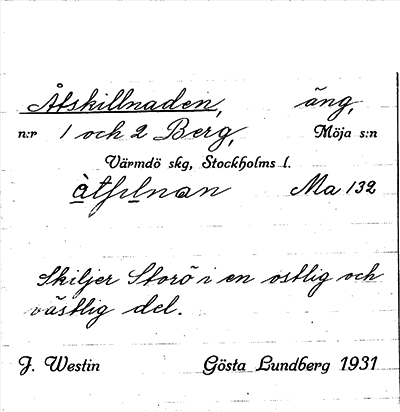 Åtskillnaden, äng,
n:r 1 och 2 Berg, Möja s:n
Värmdö skg, Stockholms l.
Ma 132
Skiljer Storö i en ostlig och
västlig del.
J. Westin Gösta Lundberg 1931